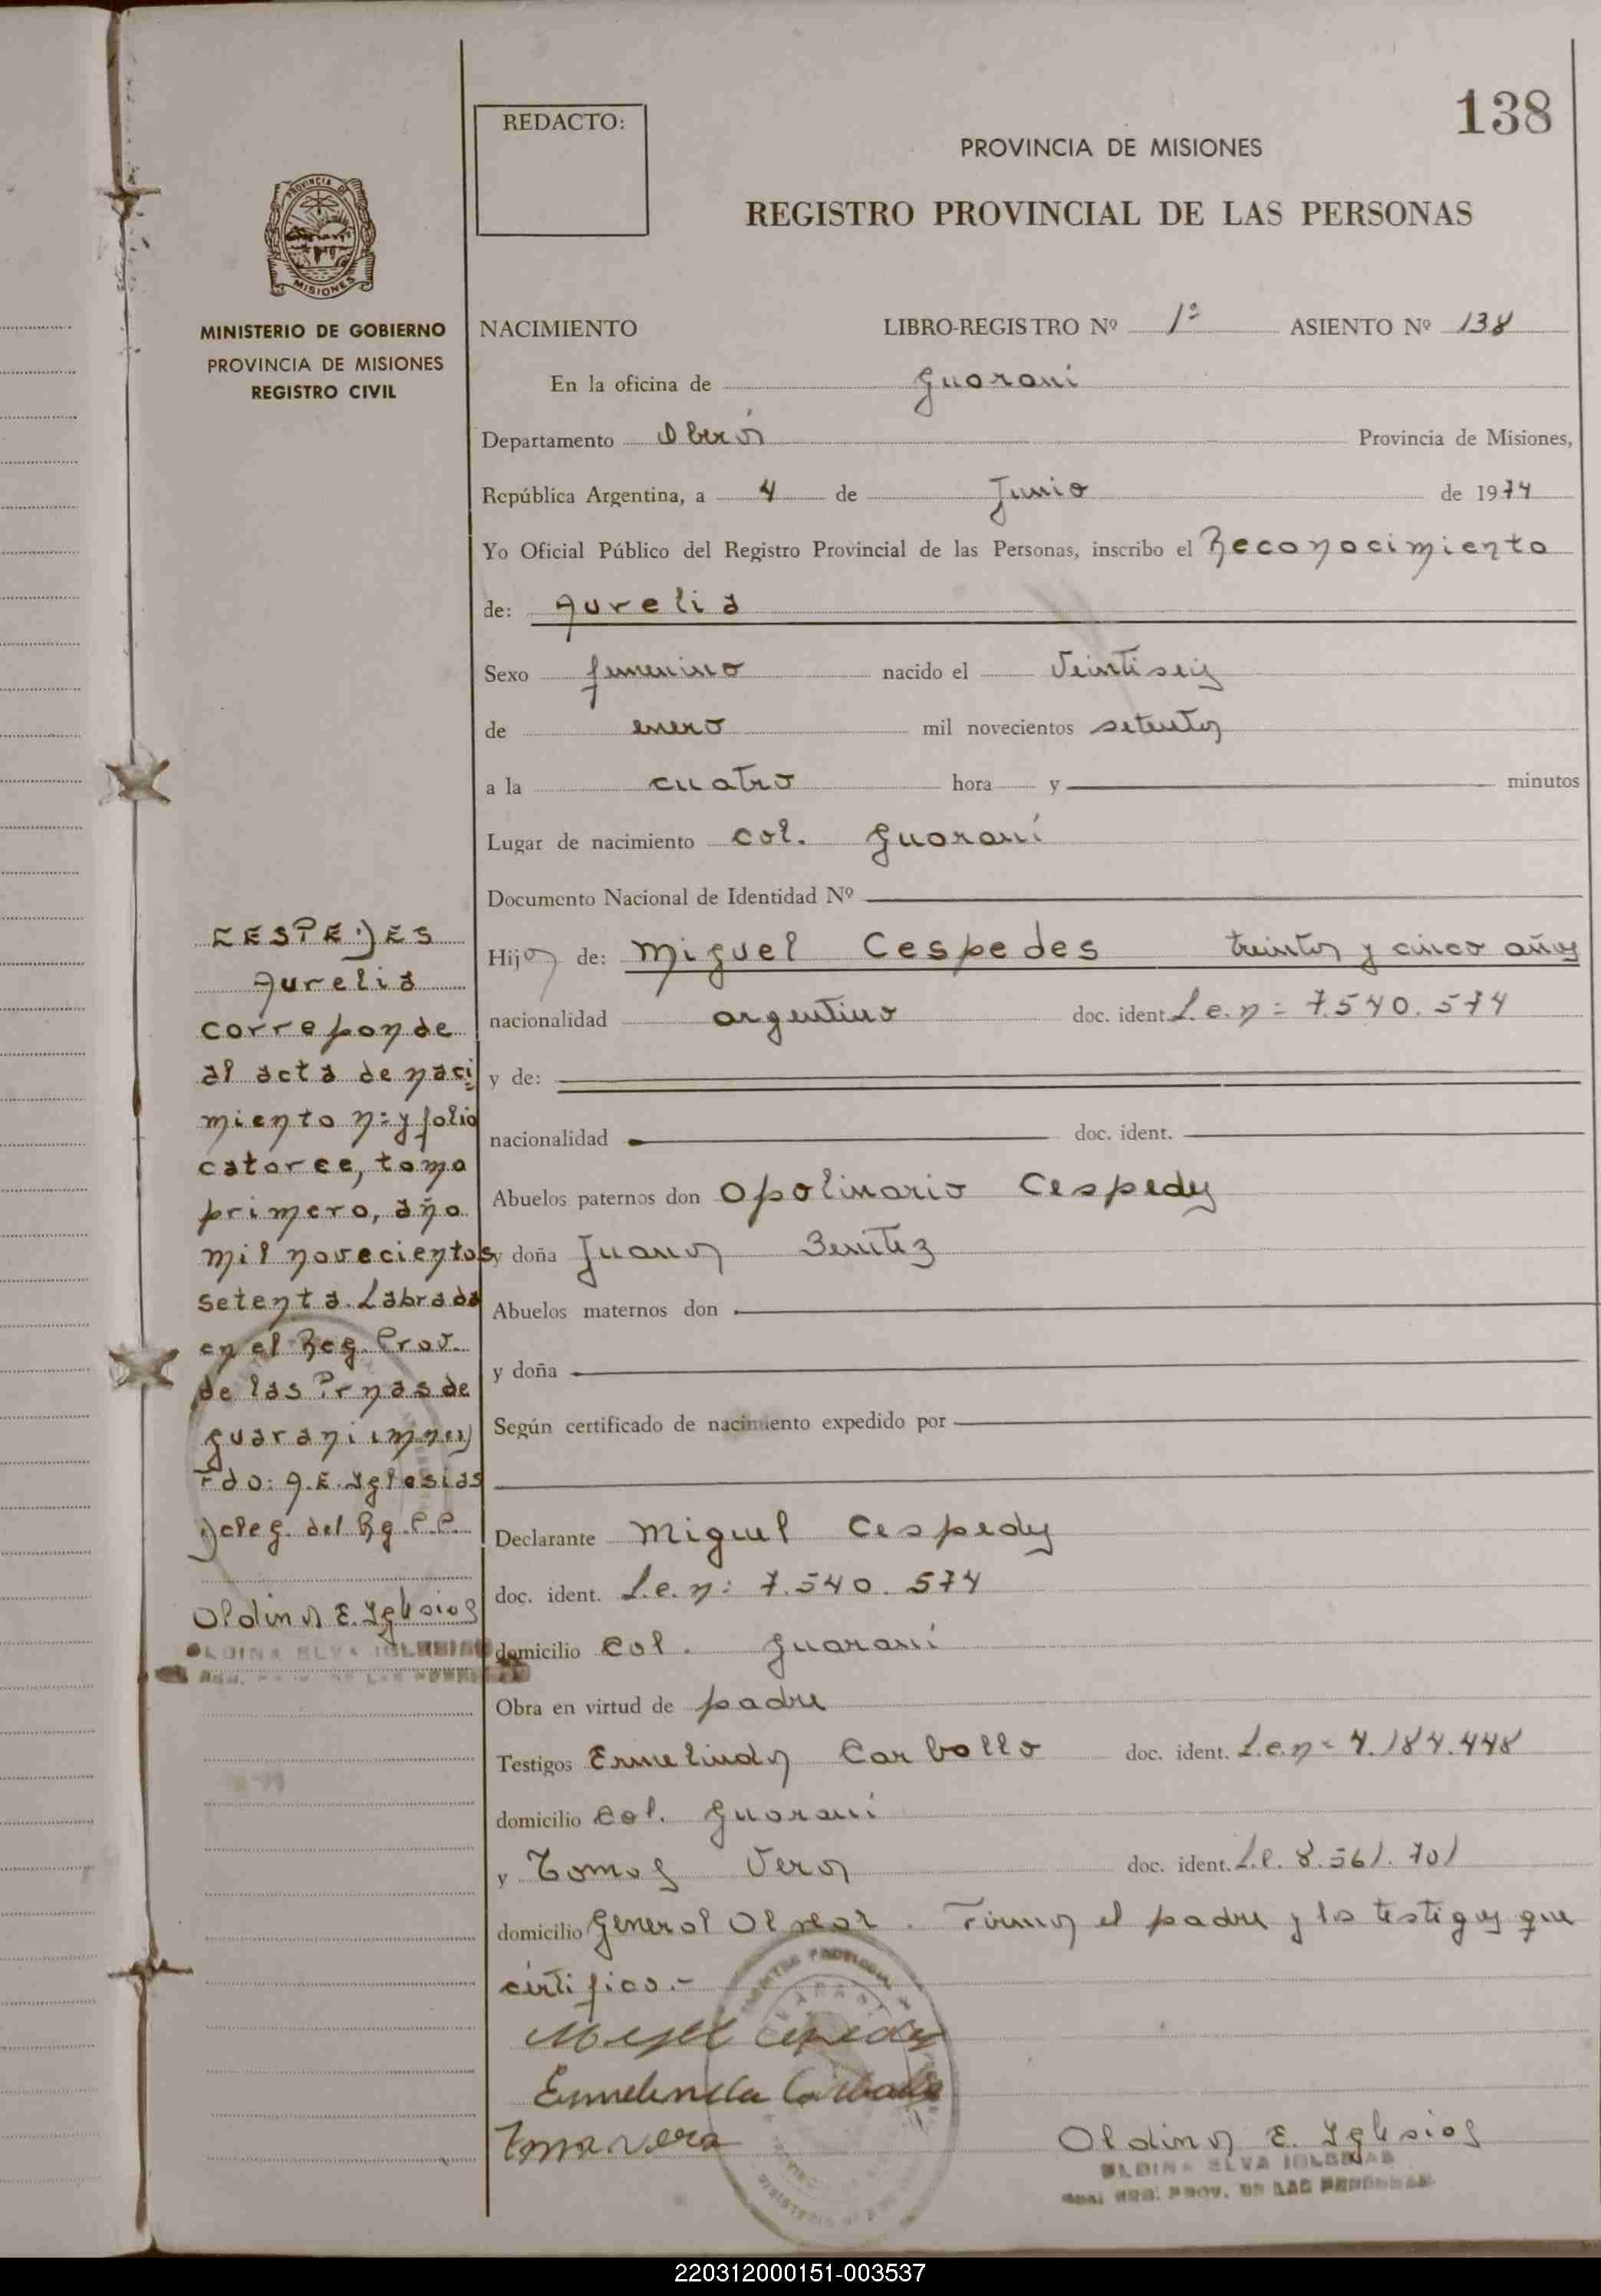 138
REDACTO:
PROVINCIA DE MISIONES
REGISTRO PROVINCIAL DE LAS PERSONAS
PROVINCIA DE
MISIONES
MINISTERIO DE GOBIERNO
PROVINCIA DE MISIONES
REGISTRO CIVIL
NACIMIENTO LIBRO-REGISTRO Nº 1º ASIENTO Nº 138
En la oficina de Guaraní
Departamento Oberá Provincia de Misiones,
República Argentina, a 4 de Junio de 1974
Yo Oficial Público del Registro Provincial de las Personas, inscribo el Reconocimiento
de: Aurelia
Sexo femenino nacido el veintiseis
de enero mil novecientos setenta
a la cuatro hora y minutos
Lugar de nacimiento Col. Guaraní
Documento Nacional de Identidad Nº
Hija de: Miguel Cespedes treinta y cinco años
nacionalidad argentino doc. ident. L.e.n= 7.540.574
y de:
nacionalidad doc. ident.
Abuelos paternos don Apolinario Cespedes
y doña Juana Benitez
Abuelos maternos don
y doña
Según certificado de nacimiento expedido por
Declarante Miguel Cespedes
doc. ident. L.e.n: 7.540.574
domicilio Col. Guaraní
Obra en virtud de padre
Testigos Ermelinda Carballo doc. ident. L.e.n= 4.184.448
domicilio Col. Guaraní
y Tomas Vera doc. ident. L.e. 8.561.701
domicilio General Alvear. Firma el padre y los testigos que
certifico.-
Miguel Cespedes
Ermelinda Carballo
Tomas Vera
Oldina E. Iglesias
OLDINA ELVA IGLESIAS
REG. PROV. DE LAS PERSONAS
CESPEDES
Aurelia
correponde
al acta de naci
miento n= y folio
catorce, tomo
primero, año
mil novecientos
setenta. Labrada
en el Reg. Prov.
de las Prnas de
guarani mnes
Fdo: O.E. Iglesias
Deleg. del Rg. P.P.
Oldina E. Iglesias
OLDINA ELVA IGLESIAS
220312000151-003537